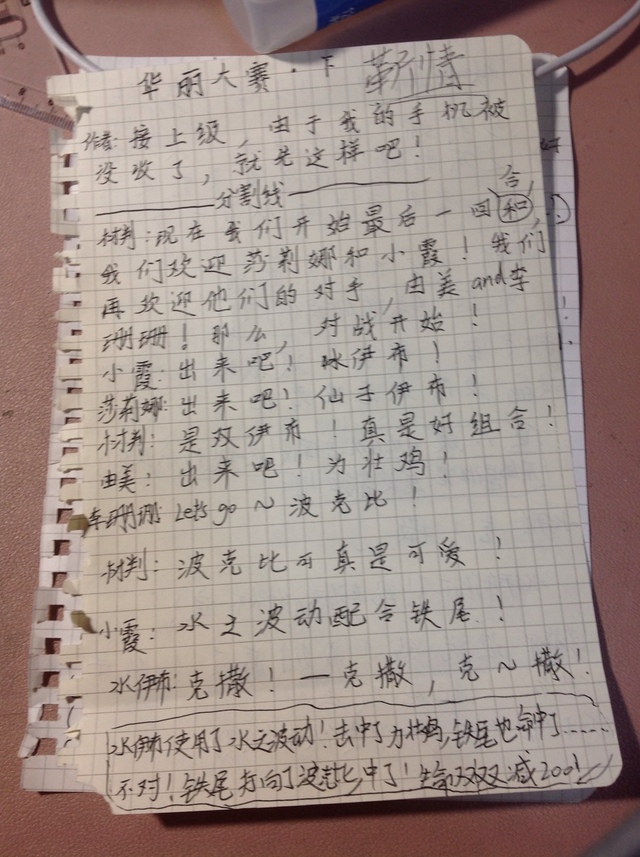 华丽大赛·下 靳情
作者:接上级,由于我的手机被
没收了,就先这样吧!
分割线
材判:现在我们开始最后一回合,
我们欢迎莎莉娜和小霞!我们
再欢迎他们的对手,由美and李
珊珊!那么,对战开始!
小霞:出来吧!冰伊布!
莎莉娜:出来吧!仙子伊布!
材判:是双伊布!真是好组合!
由美:出来吧!力壮鸡!
李珊珊:Let's go~波克比!
材判:波克比可真是可爱!
小霞:水之波动配合铁尾!
水伊布:克撒!一克撒,克~撒!
水伊布使用了水之波动!击中了力壮鸡,铁尾也命中了……
不对!铁尾打向了波克比,中了!生命双双减200!